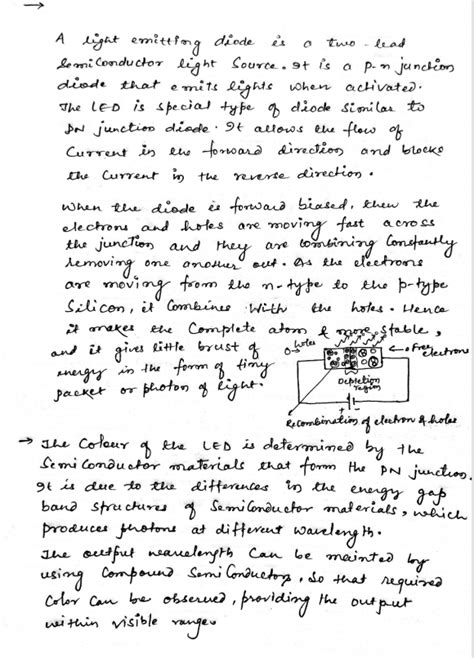 →
A light emitting diode is a two-lead
Semiconductor light Source. It is a p-n junction
diode that emits lights when activated.
The LED is special type of diode Similar to
PN junction diode. It allows the flow of
Current in the forward direction and blocks
the Current in the reverse direction.
When the diode is forward biased, then the
electrons and holes are moving fast across
the junction and they are combining Constantly
removing one another out. As the electrons
are moving from the n-type to the p-type
Silicon, it Combines with the holes. Hence
it makes the Complete atom & more Stable,
and it gives little brust of
energy in the form of tiny
packet or photon of light.
holes
Free electrons
Depletion
region
Recombination of electron & holes
→ The Colour of the LED is determined by the
Semi Conductor materials that form the PN junction.
It is due to the differences in the energy gap
band structures of Semiconductor materials, which
produces photons at different wavelength.
The output wavelength Can be mainted by
using Compound Semi Conductors, So that required
Color Can be observed, providing the output
within visible range.